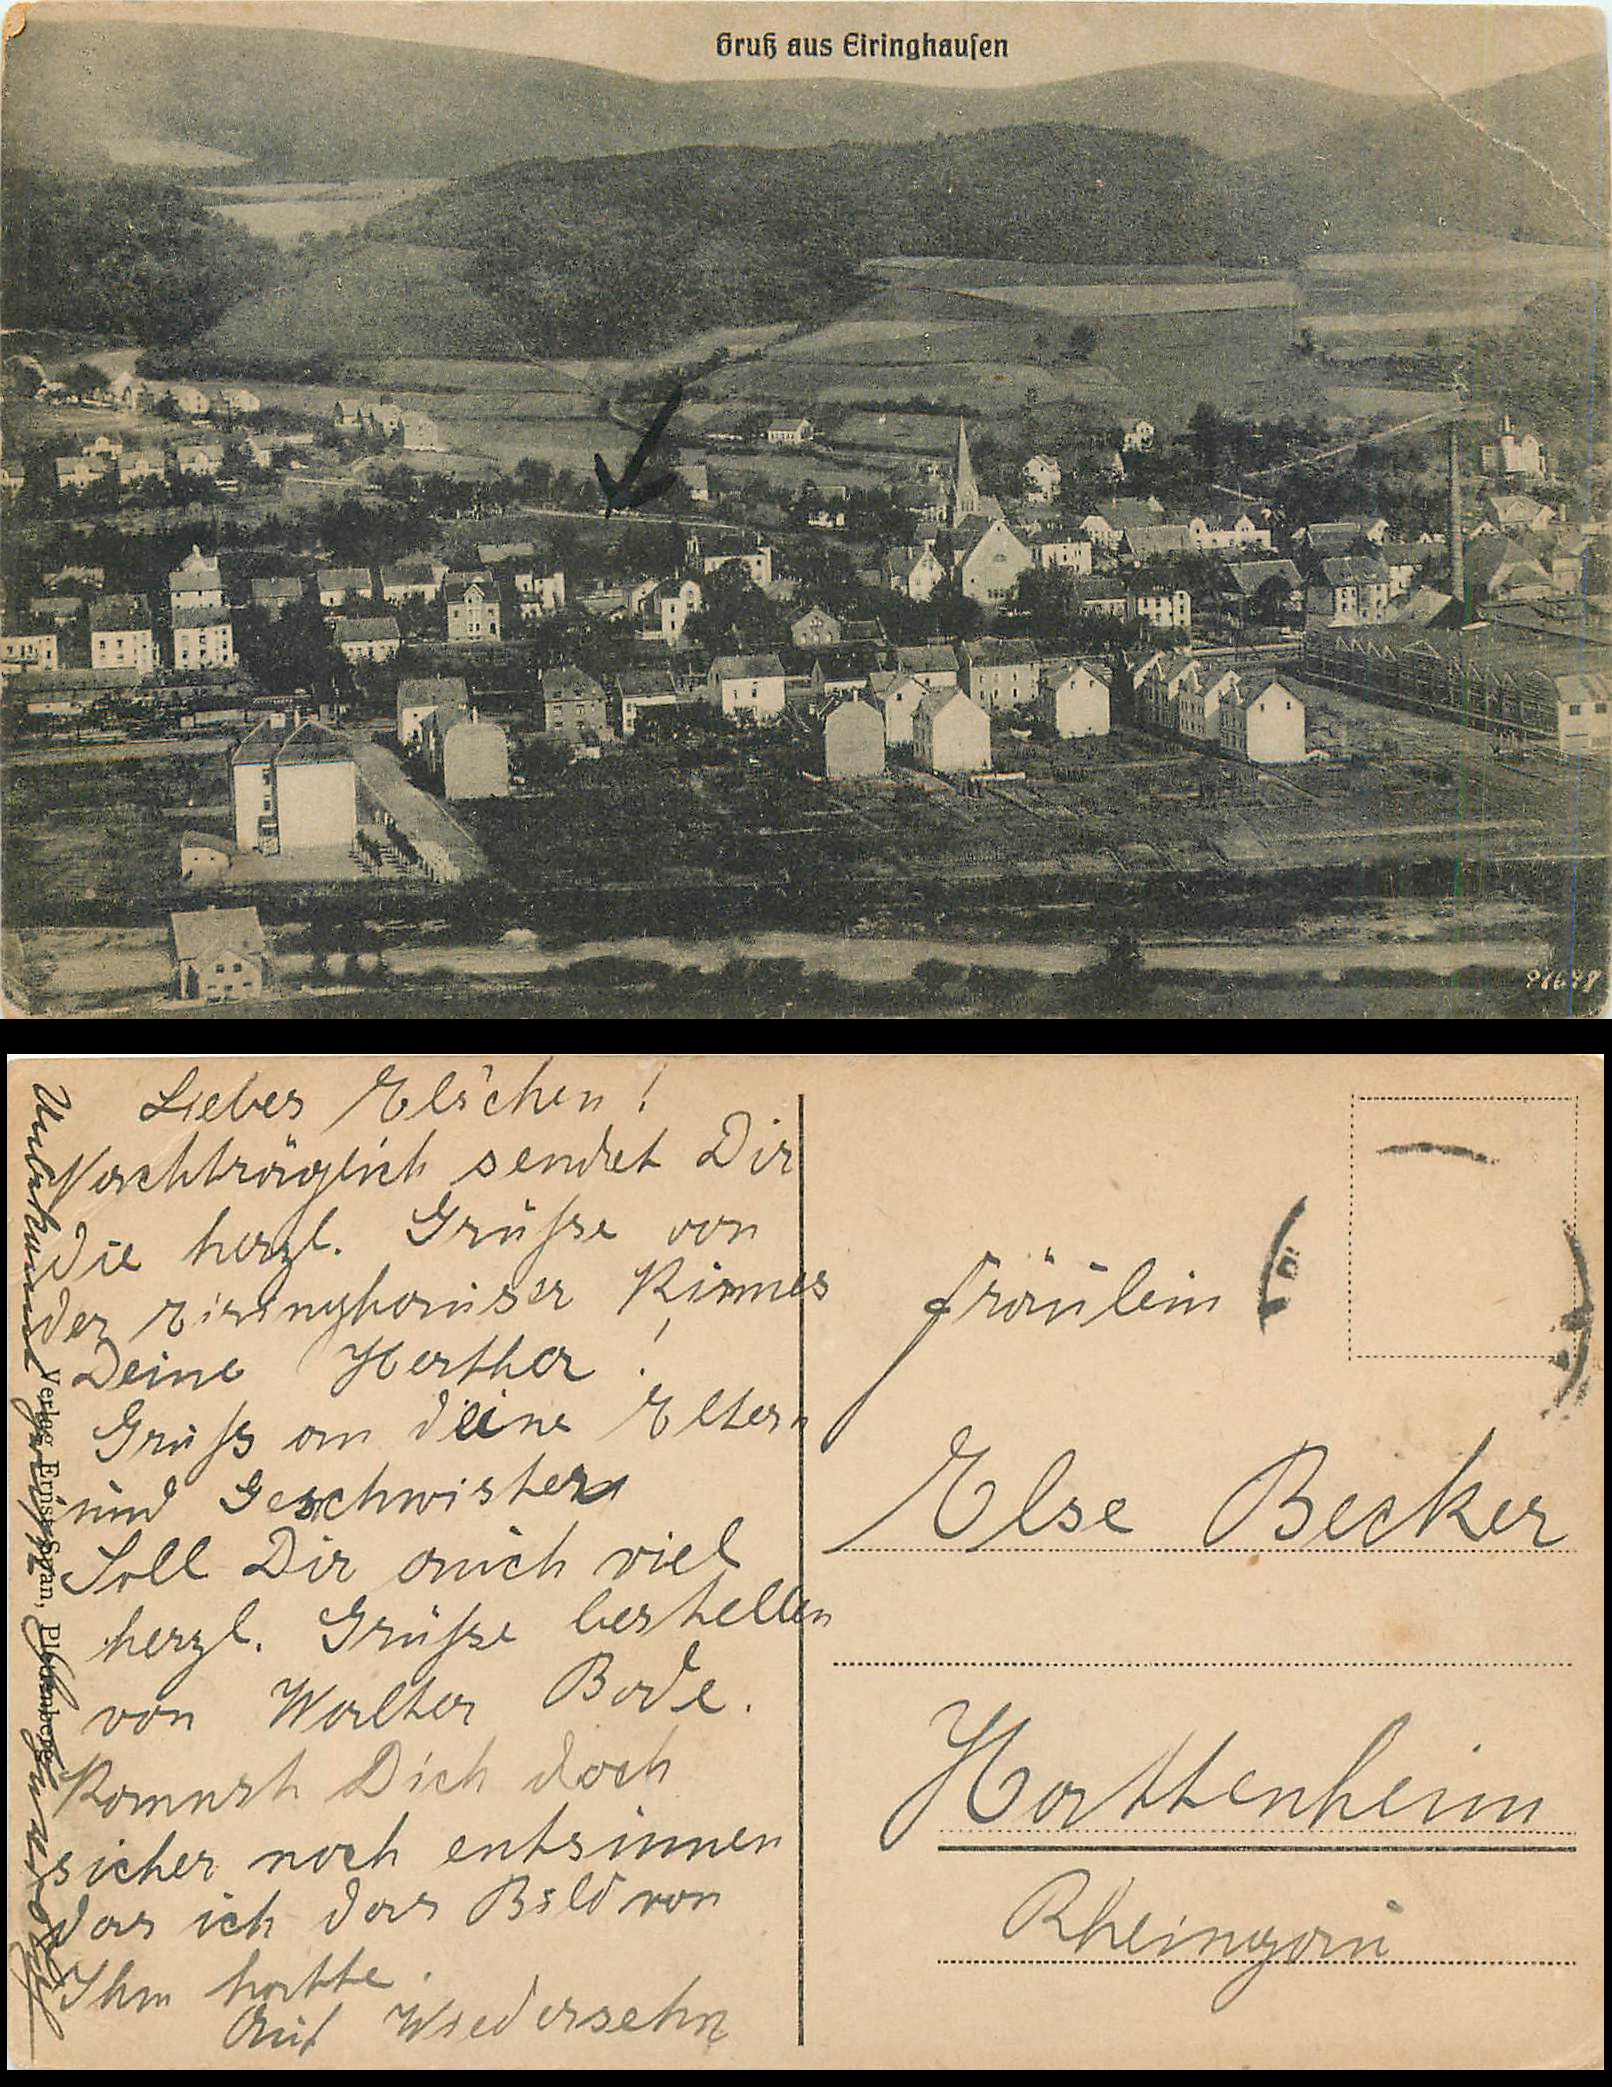 Gruß aus Eiringhausen
91698
Liebes Elschen!
Nachträglich sendet Dir
die herzl. Grüsse von
der Eiringhauser Kirmes
Deine Hertha!
Gruss an deine Eltern
und Geschwistern
Soll Dir auch viel
herzl. Grüsse bestellen
von Walter Bode.
Kannst Dich doch
sicher noch entsinnen
das ich das Bild von
Ihm hatte.
Auf Wiedersehn
Unbekannt
Verlag Ernst Span, Plettenberg
Fräulein
Else Becker
Hattenheim
Rheingau